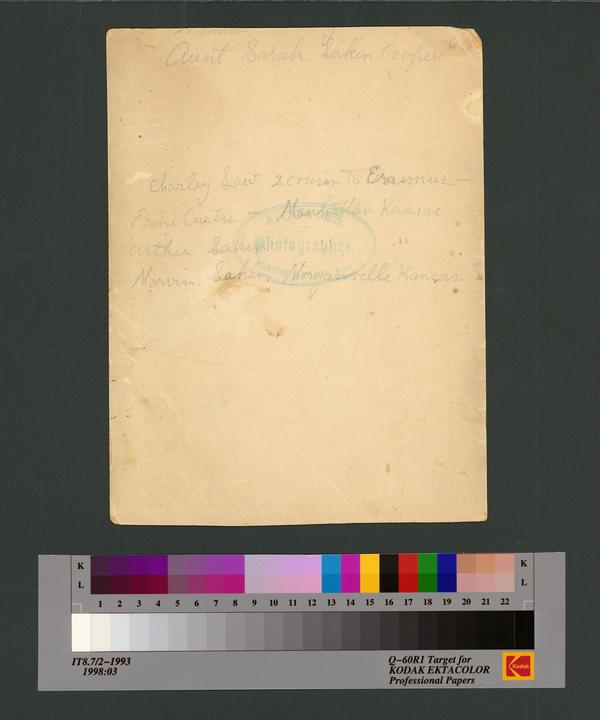 Aunt Sarah Lakin Cooper
Charley Law 2 cousin to Erasmus
Curtis — Manhattan Kansas
Photographer
Arther Lakin "
Marvin Lakin Morganville Kansas
K K
L L
1 2 3 4 5 6 7 8 9 10 11 12 13 14 15 16 17 18 19 20 21 22
IT8.7/2–1993
1998:03
Q–60R1 Target for
KODAK EKTACOLOR
Professional Papers
Kodak